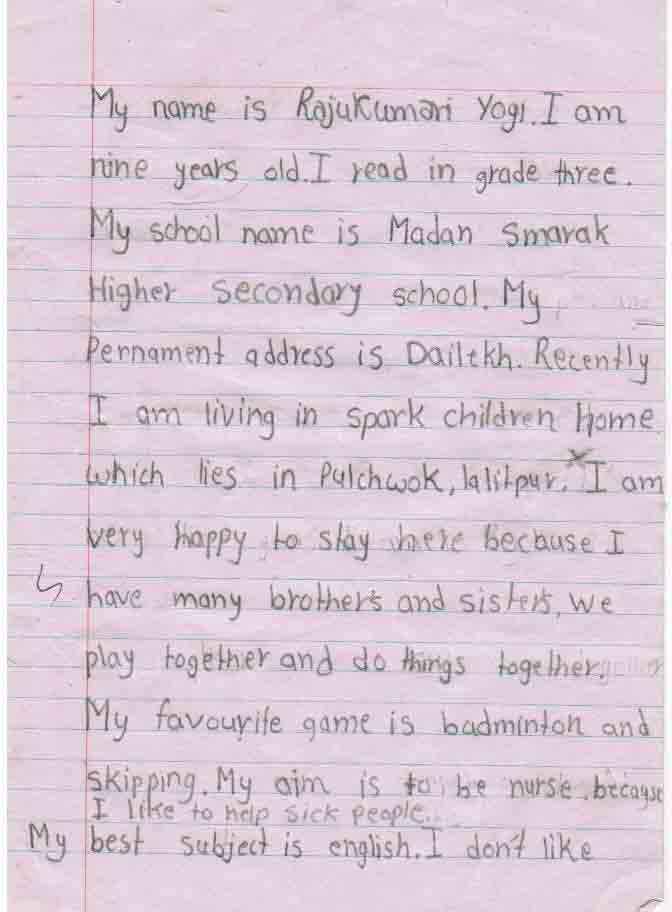 My name is RajuKumari Yogi. I am
nine years old. I read in grade three.
My school name is Madan Smarak
Higher Secondary school. My
Pernament address is Dailekh. Recently
I am living in spark children Home
which lies in Pulchwok, lalitpur. I am
very happy to stay here because I
have many brothers and sisters, we
play together and do things together.
My favourite game is badminton and
skipping. My aim is to be nurse. because
I like to help sick people.
My best subject is english. I don't like